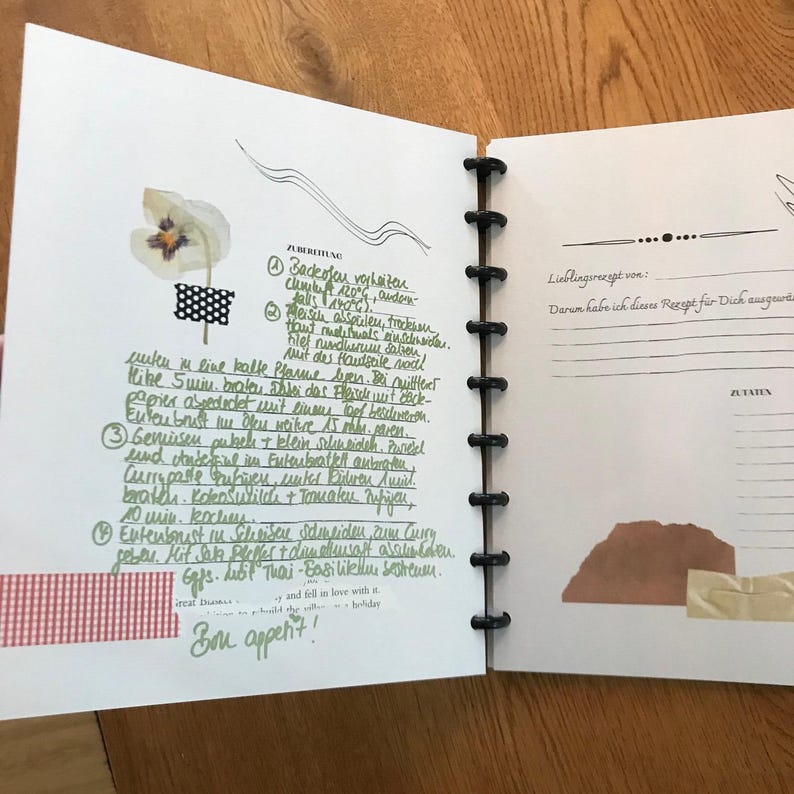 ZUBEREITUNG
① Backofen vorheizen
(Umluft 120°C, andern-
falls 140°C).
② Fleisch abspülen, trocknen
Haut mehrmals einschneiden.
Filet rundherum salzen
mit der Hautseite nach
unten in eine kalte Pfanne legen. Bei mittlerer
Hitze 5 min. braten. Dabei das Fleisch mit Back-
papier abgedeckt mit einem Topf beschweren.
Entenbrust im Ofen weitere 15 min. garen.
③ Gemüsen putzen + klein schneiden. Zwiebel
und in Entenbratfett anbraten,
Currypaste zufügen, unter Rühren 1 min.
braten. Kokosmilch + Tomaten zufügen,
10 min. kochen.
④ Entenbrust in Scheiben schneiden, zum Curry
geben. Mit Salz, Pfeffer + Limettensaft abschmecken.
Ggfs. mit Thai-Basilikum bestreuen.
Great and fell in love with it.
to rebuild the village as a holiday
Bon appetit!
Lieblingsrezept von:
Darum habe ich dieses Rezept für Dich
ZUTATEN